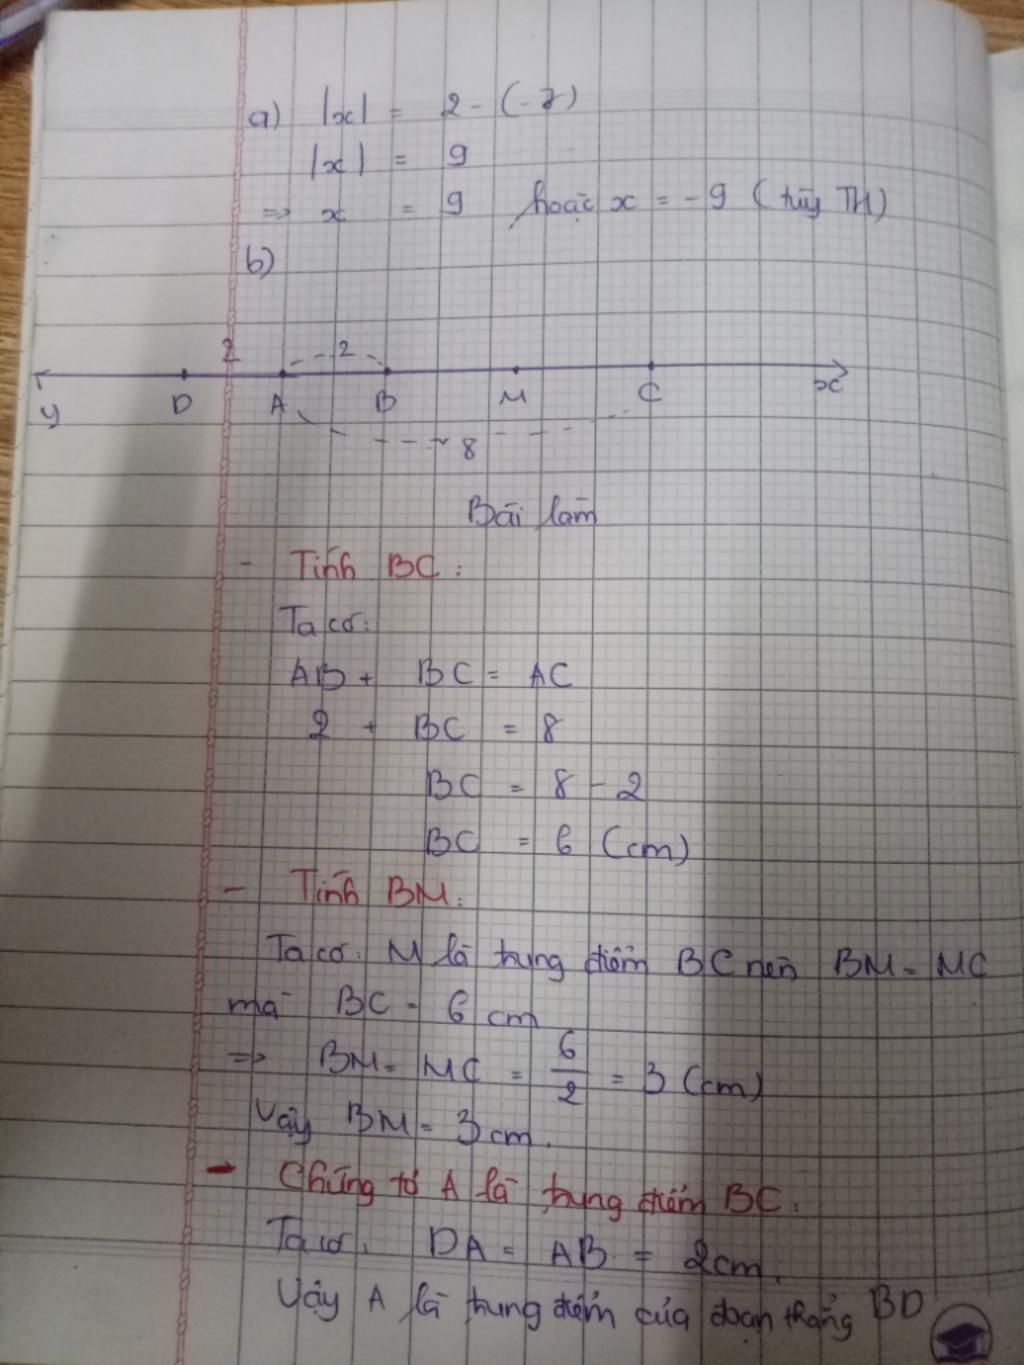 a) |x| = 2 - (-7)
|x| = 9
=> x = 9 hoặc x = -9 (tùy TH)
b)
2 2
y D A B M C x
8
Bài làm
- Tính BC:
Ta có:
AB + BC = AC
2 + BC = 8
BC = 8 - 2
BC = 6 (cm)
- Tính BM:
Ta có: M là trung điểm BC nên BM = MC
mà BC = 6 cm
=> BM = MC = 6/2 = 3 (cm)
Vậy BM = 3 cm.
- Chứng tỏ A là trung điểm BC:
Ta có: DA = AB = 2cm.
Vậy A là trung điểm của đoạn thẳng BD